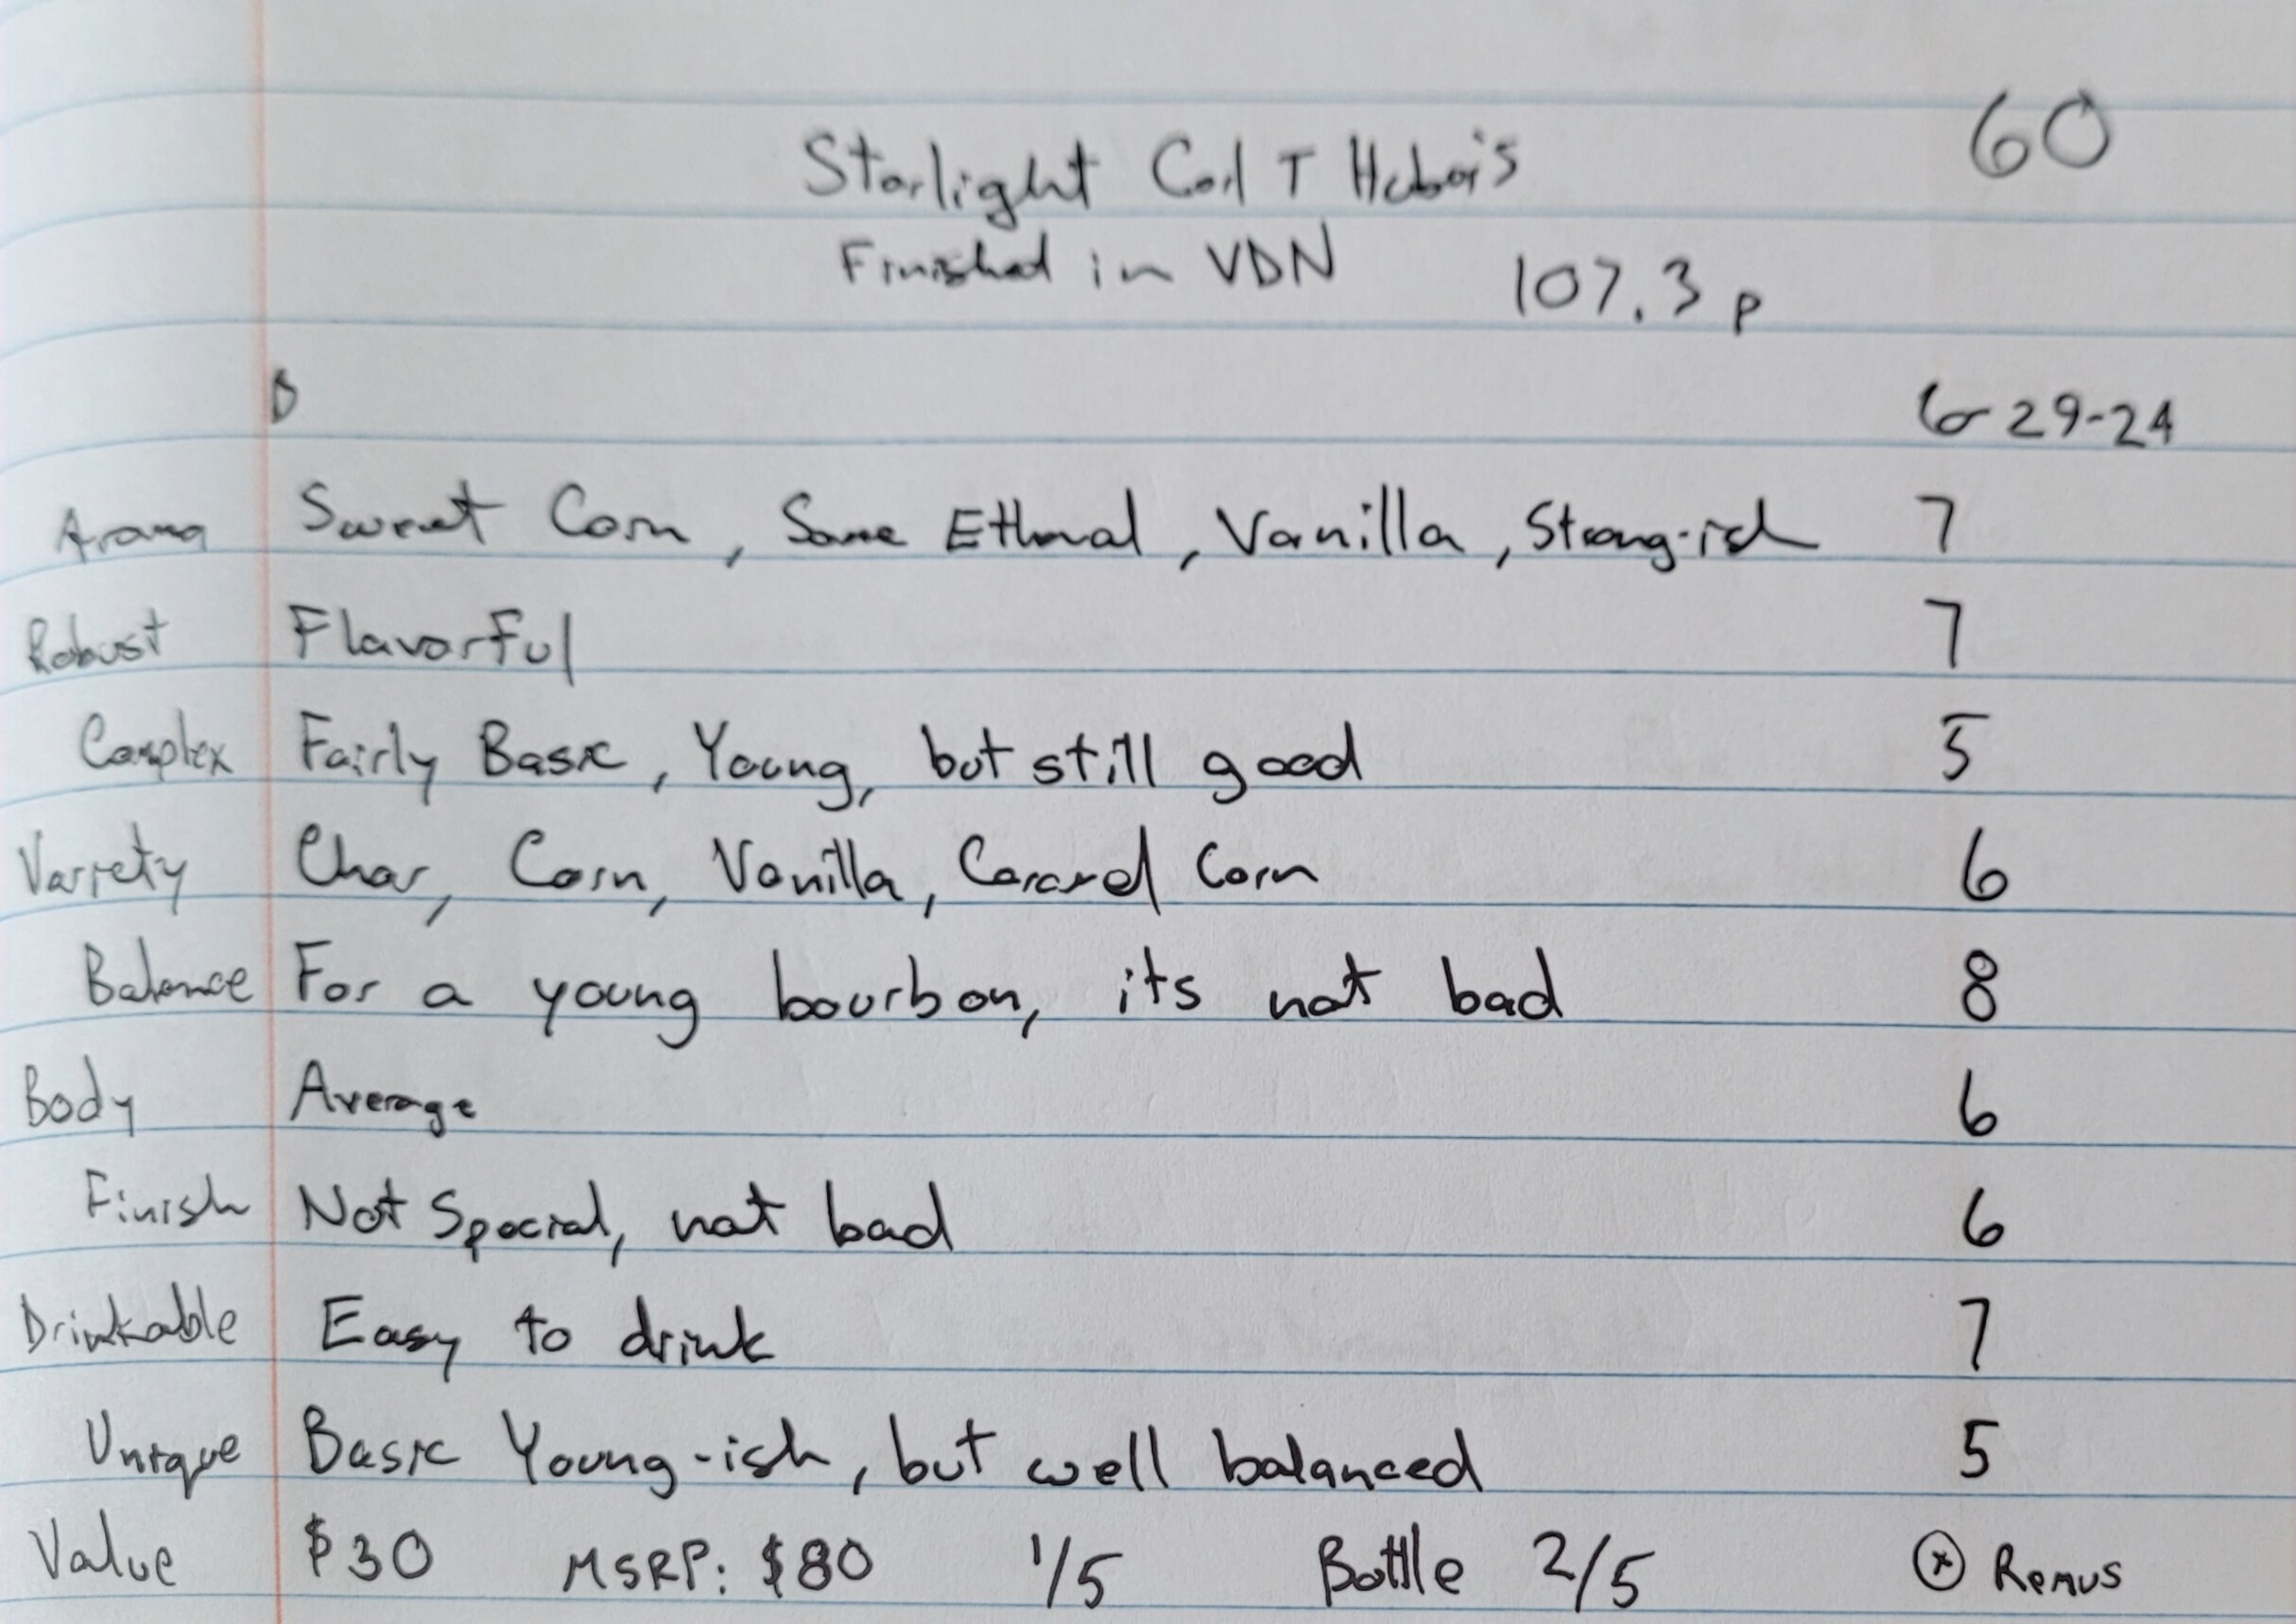 60
Starlight Carl T Huber's
Finished in VDN 107.3 p
B 6-29-24
Aroma Sweet Corn, Some Ethonal, Vanilla, Strong-ish 7
Robust Flavorful 7
Complex Fairly Basic, Young, but still good 5
Variety Char, Corn, Vanilla, Caramel Corn 6
Balance For a young bourbon, its not bad 8
Body Average 6
Finish Not Special, not bad 6
Drinkable Easy to drink 7
Unique Basic Young-ish, but well balanced 5
Value $30 MSRP: $80 1/5 Bottle 2/5 Remus